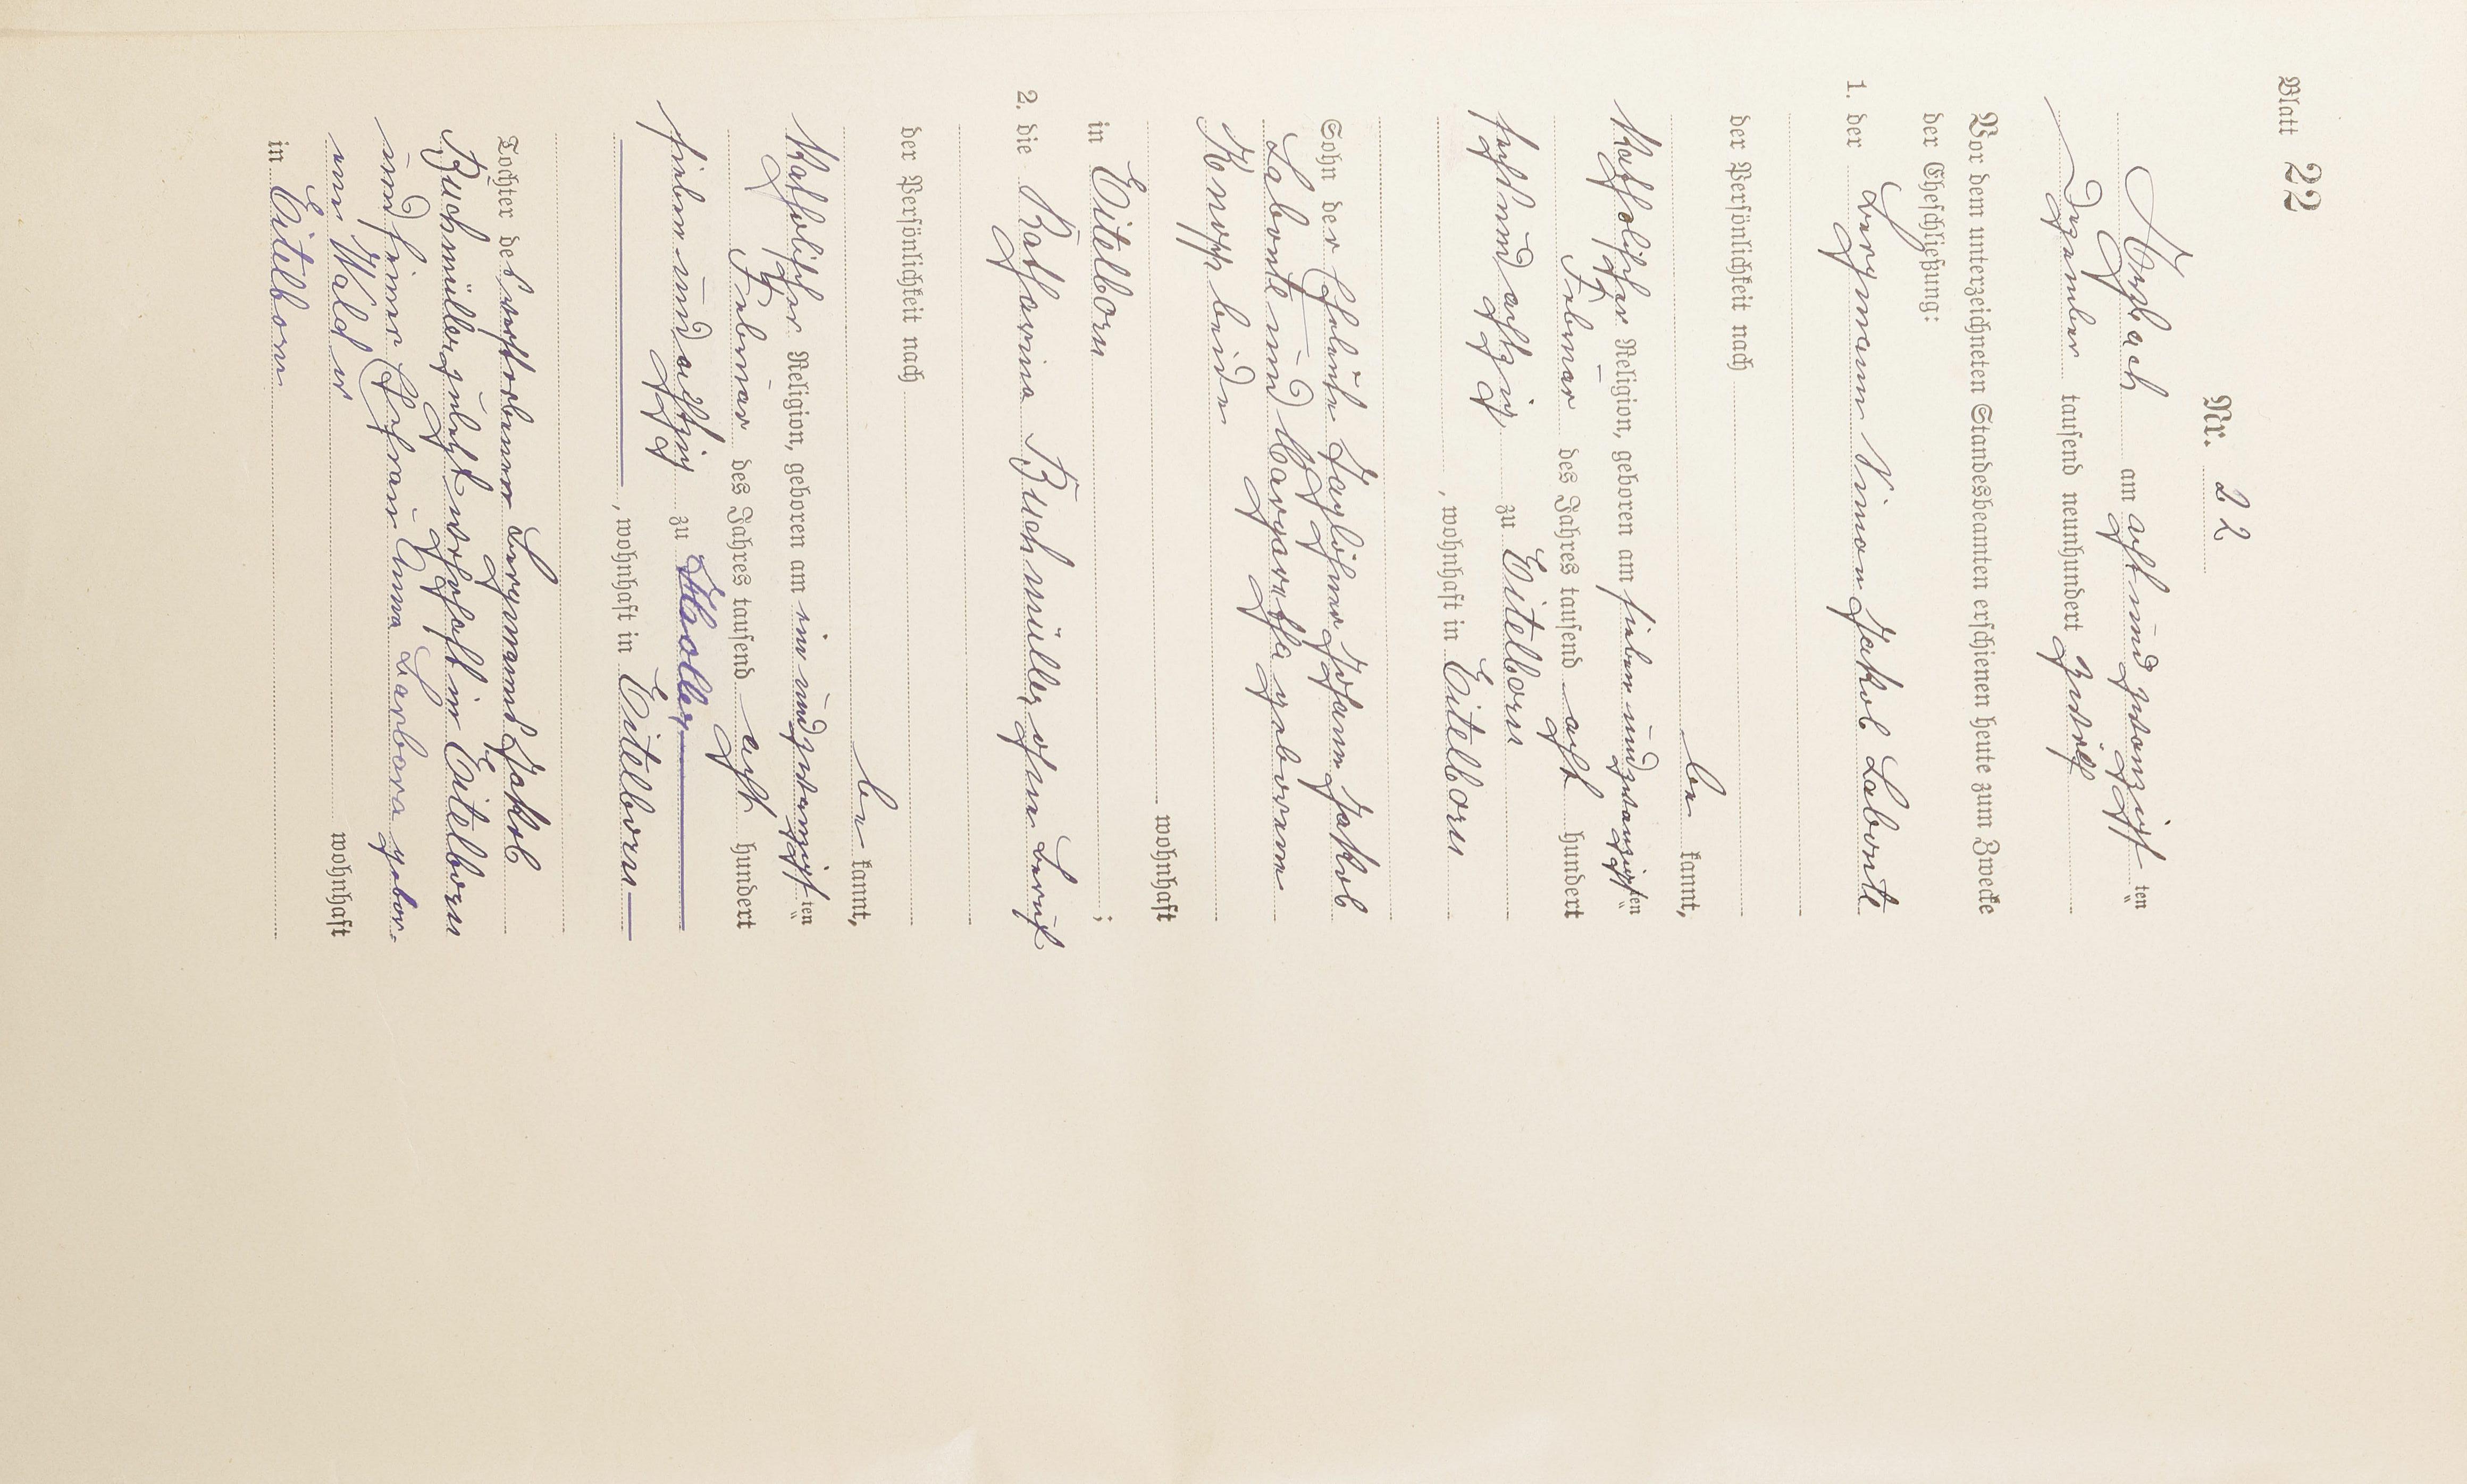 Blatt 22
Nr. 22
Arzbach am acht und zwanzigsten
Dezember tausend neunhundert zwölf
Vor dem unterzeichneten Standesbeamten erschienen heute zum Zwecke
der Eheschließung:
1. der Bergmann Simon Jakob Labonte
der Persönlichkeit nach
be kannt,
Katholischer Religion, geboren am sieben und zwanzigsten
Februar des Jahres tausend acht hundert
sechs und achtzig zu Eitelborn
, wohnhaft in Eitelborn
Sohn der Eheleute Taglöhner Johann Jakob
Labonte und Margaretha geborene
Knopp beide
wohnhaft
in Eitelborn ;
2. die Katharina Buchmüller ohne Beruf
der Persönlichkeit nach
be kannt,
Katholischer Religion, geboren am ein und zwanzigsten
Februar des Jahres tausend acht hundert
sieben und achtzig zu Holler
, wohnhaft in Eitelborn
Tochter des verstorbenen Bergmanns Jakob
Buchmüller zuletzt wohnhaft in Eitelborn
und seiner Ehefrau Anna Barbara gebor-
ene Wald er
wohnhaft
in Eitelborn